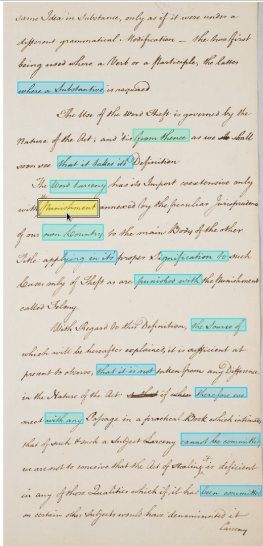 same Idea in Substance, only as if it were under a
different grammatical Modification — the two first
being used where a Verb or a Participle, the latter
where a Substantive is required
The Use of the word Theft is governed by the
Nature of the Act; and tis from thence as we shall
soon see that it takes its Definition
The Word Larceny has its Import coextensive only
with Punishment annexed by the peculiar Jurisprudence
of our own Country to the main Body of the other
Title applying in its proper Signification to such
Cases only of Theft as are punished with the Punishment
called Felony
With Regard to this Definition, the Source of
which will be hereafter explained, it is sufficient at
present to observe, that it is not taken from any Difference
in the Nature of the Act if therefore we
meet with any Passage in a practical Book which intimates
that of such & such a Subject Larceny cannot be committed
we are not to conceive that the Act of Stealing it is deficient
in any of those Qualities which if it had been committed
on certain other Subjects would have denominated it
Larceny